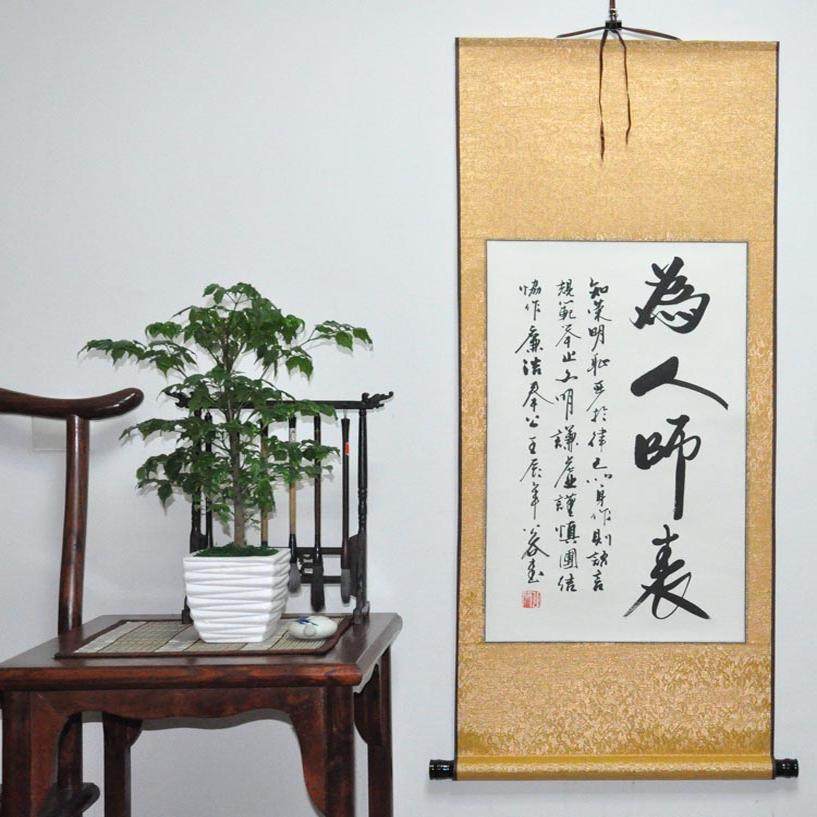 為人師表
知榮明恥嚴於律己以身作則語言
規範舉止文明謙虛謹慎團結
協作廉潔奉公壬辰年